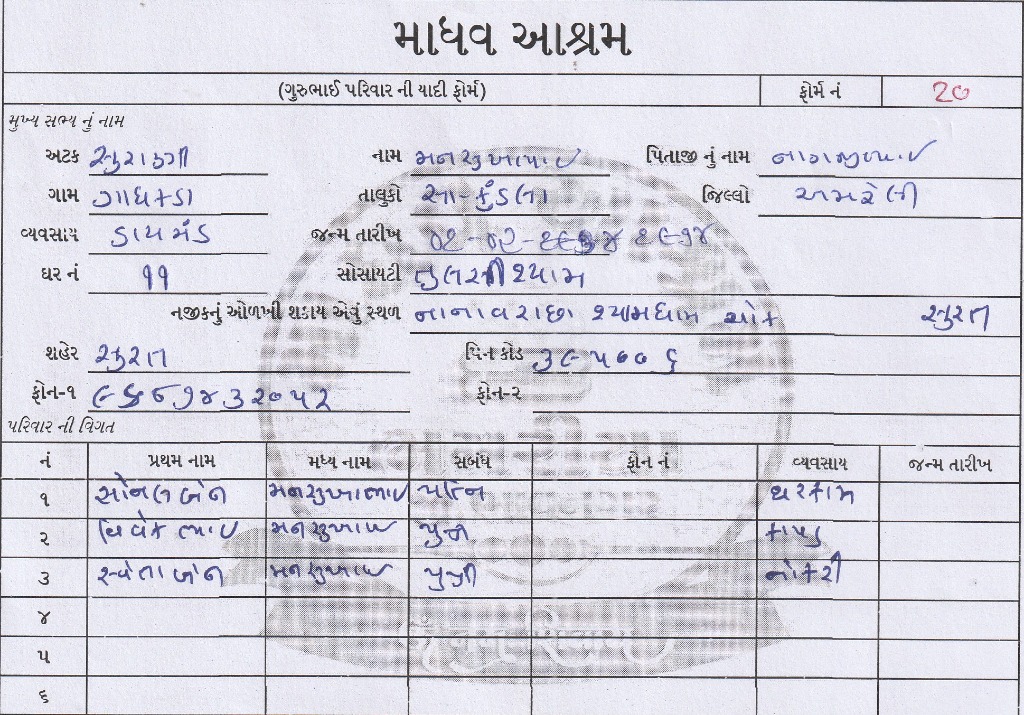 માધવ આશ્રમ
(ગુરુભાઈ પરિવાર ની યાદી ફોર્મ) ફોર્મ નં 20
મુખ્ય સભ્ય નું નામ
અટક સુરાણી નામ મનસુખભાઈ પિતાજી નું નામ નાગજીભાઈ
ગામ ગાધકડા તાલુકો સા-કુંડલા જિલ્લો અમરેલી
વ્યવસાય ડાયમંડ જન્મ તારીખ ૦૨-૦૨- ૧૯૭૪
ઘર નં ૧૧ સોસાયટી તુલસીશ્યામ
નજીકનું ઓળખી શકાય એવું સ્થળ નાનાવરાછા શ્યામધામ ચોક સુરત
શહેર સુરત પિન કોડ ૩૯૫૦૦૬
ફોન-૧ ફોન-૨
પરિવાર ની વિગત
નં પ્રથમ નામ મધ્ય નામ સબંધ ફોન નં વ્યવસાય જન્મ તારીખ
૧ સોનલબેન મનસુખભાઈ પત્નિ ઘરકામ
૨ વિવેકભાઈ મનસુખભાઈ પુત્ર કાપડ
૩ સ્વેતાબેન મનસુખભાઈ પુત્રી નોકરી
૪
૫
૬